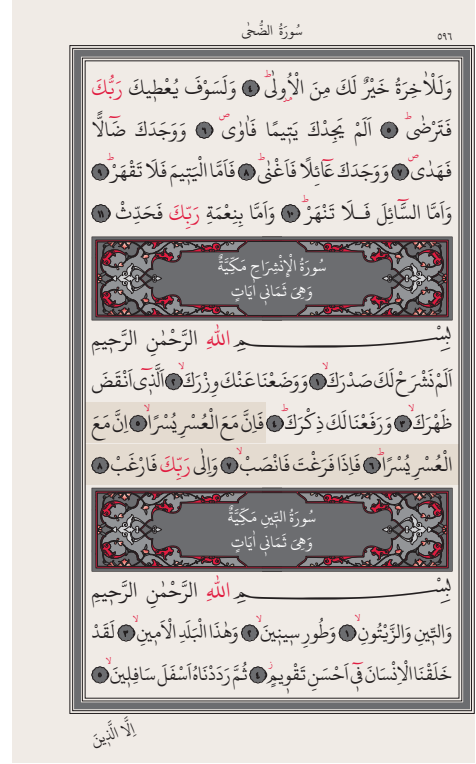 سُورَةُ الضُّحٰى
٥٩٦
وَلَلْاٰخِرَةُ خَيْرٌ لَكَ مِنَ الْاُولٰىۜ ﴿٤﴾ وَلَسَوْفَ يُعْطٖيكَ رَبُّكَ
فَتَرْضٰىۜ ﴿٥﴾ اَلَمْ يَجِدْكَ يَتٖيمًا فَاٰوٰىۖ ﴿٦﴾ وَوَجَدَكَ ضَٓالًّا
فَهَدٰىۖ ﴿٧﴾ وَوَجَدَكَ عَٓائِلًا فَاَغْنٰىۜ ﴿٨﴾ فَاَمَّا الْيَتٖيمَ فَلَا تَقْهَرْۜ ﴿٩﴾
وَاَمَّا السَّٓائِلَ فَـلَا تَنْهَرْۜ ﴿١٠﴾ وَاَمَّا بِنِعْمَةِ رَبِّكَ فَحَدِّثْ ﴿١١﴾
سُورَةُ الْاِنْشِرَاحِ مَكِّيَّةٌ
وَهِيَ ثَمَانٖي اٰيَاتٍ
بِسْــــــــمِ اللّٰهِ الرَّحْمٰنِ الرَّحٖيمِ
اَلَمْ نَشْرَحْ لَكَ صَدْرَكَۙ ﴿١﴾ وَوَضَعْنَا عَنْكَ وِزْرَكَۙ ﴿٢﴾ اَلَّذٖٓي اَنْقَضَ
ظَهْرَكَۙ ﴿٣﴾ وَرَفَعْنَا لَكَ ذِكْرَكَۜ ﴿٤﴾ فَاِنَّ مَعَ الْعُسْرِ يُسْرًاۙ ﴿٥﴾ اِنَّ مَعَ
الْعُسْرِ يُسْرًاۜ ﴿٦﴾ فَاِذَا فَرَغْتَ فَانْصَبْۙ ﴿٧﴾ وَاِلٰى رَبِّكَ فَارْغَبْ ﴿٨﴾
سُورَةُ التّٖينِ مَكِّيَّةٌ
وَهِيَ ثَمَانٖي اٰيَاتٍ
بِسْــــــــمِ اللّٰهِ الرَّحْمٰنِ الرَّحٖيمِ
وَالتّٖينِ وَالزَّيْتُونِۙ ﴿١﴾ وَطُورِ سٖينٖينَۙ ﴿٢﴾ وَهٰذَا الْبَلَدِ الْاَمٖينِۙ ﴿٣﴾ لَقَدْ
خَلَقْنَا الْاِنْسَانَ فٖٓي اَحْسَنِ تَقْوٖيمٍۘ ﴿٤﴾ ثُمَّ رَدَدْنَاهُ اَسْفَلَ سَافِلٖينَۙ ﴿٥﴾
اِلَّا الَّذٖينَ